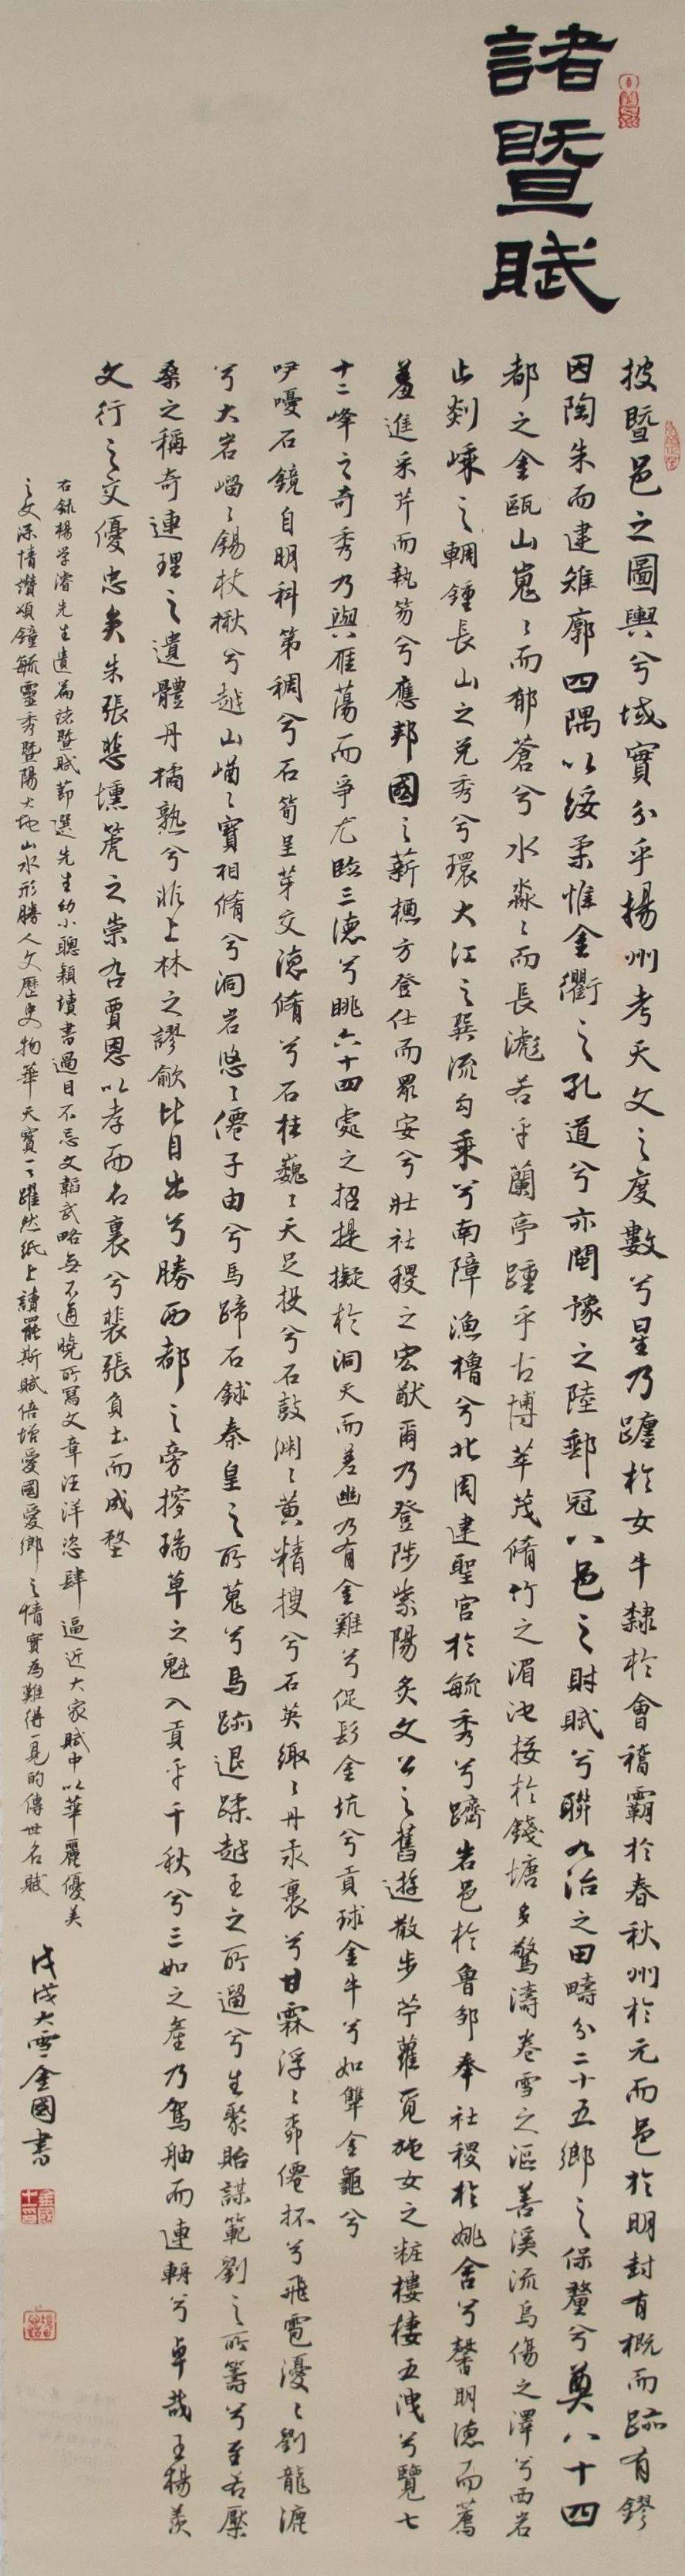 諸暨賦
披暨邑之圖輿兮域實分乎揚州考天文之度數兮星乃躔於女牛隸於會稽霸於春秋州於元而邑於明封有概而跡有鏐
因陶朱而建雉廓四隅以綏柔惟金衢之孔道兮亦閩豫之陸郵冠八邑之財賦兮聯九治之田疇分二十五鄉之保釐兮奠八十四
都之金甌山嵬嵬而郁蒼兮水淼淼而長滮若乎蘭亭踵乎古博萃茂脩竹之湄池接於錢塘多驚濤卷雪之漚善溪流烏傷之澤兮西岩
止剡嵊之輞鍾長山之兌秀兮環大江之巽流勾乘兮南障漁櫓兮北周建聖宮於毓秀兮躋岩邑於魯鄒奉社稷於姚舍兮馨明德而薦
羞進采芹而執笏兮應邦國之薪槱方登仕而眾安兮壯社稷之宏猷爾乃登陟紫陽炙文公之舊遊散步苧蘿覓施女之粧樓棲五洩兮覽七
十二峰之奇秀乃與雁蕩而爭尤臨三德兮眺六十四處之招提擬於洞天而差幽乃有金雞兮促髟金坑兮貢球金牛兮如雙金龜兮
呼嚘石鏡自明科第稠兮石筍呈芽交德脩兮石柱巍巍天足投兮石鼓淵淵黃精搜兮石英緅緅丹汞裹兮甘霖浮浮奔僊抔兮飛雹瀀瀀劉龍漉
兮大岩嵧嵧錫杖楸兮越山崷崷寶相脩兮洞岩悠悠僊子由兮馬蹄石銶秦皇之所蒐兮馬跡退蹂越王之所遛兮生聚貽謀範劉之所籌兮至若檿
桑之稱奇連理之遺體丹橘熟兮昨上林之謬歈比目出兮勝西都之旁摎瑞草之魁入貢乎千秋兮三如之產乃駕舳而連輈兮卓哉王楊羨
文行之交優忠矣朱張悲壎篪之崇咎賈恩以孝而名裏兮裴張負土而成堥
右錄楊學濬先生遺篇諸暨賦節選先生幼小聰穎讀書過目不忘文韜武略無不通曉所寫文章汪洋恣肆逼近大家賦中以華麗優美
之文深情讚頌鐘毓靈秀暨陽大地山水形勝人文歷史物華天寶一一躍然紙上讀罷斯賦倍增愛國愛鄉之情實為難得一見的傳世名賦
戊戌大雪金國書